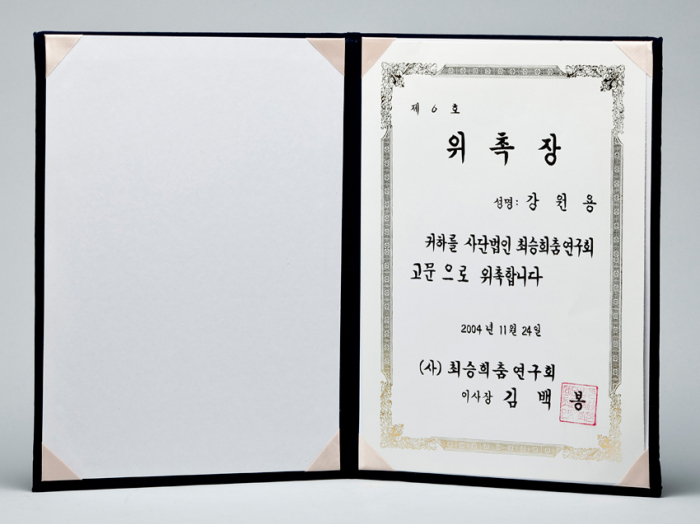 제 6 호
위 촉 장
성명: 강 원 용
귀하를 사단법인 최승희춤연구회
고문 으로 위촉합니다
2004년 11월 24일
(사) 최승희춤연구회
이사장 김 백 봉